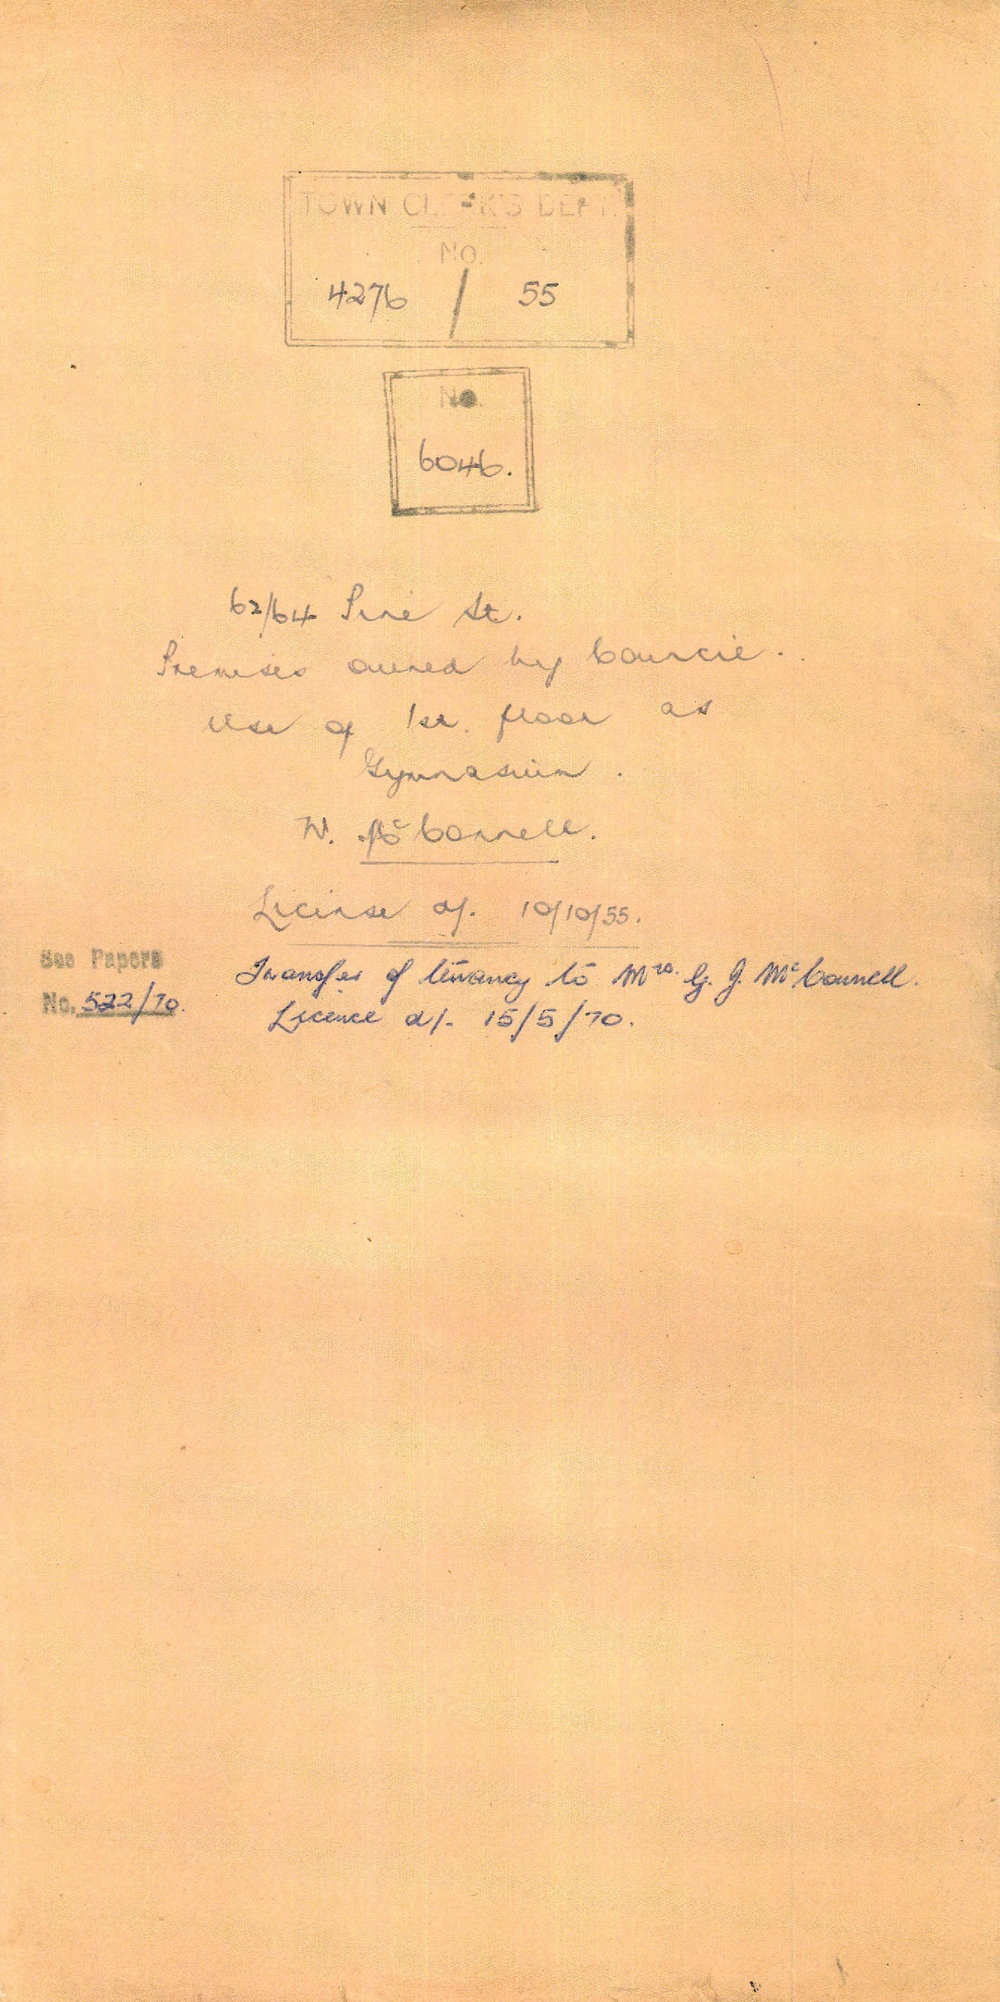 TOWN CLERK'S DEPT.
No.
4276 / 55
No.
6046.
62/64 Pine St.
Premises owned by Council.
Use of 1st. floor as
Gymnasium.
W. McConnell.
License d/. 10/10/55.
See Papers
No. 522/70.
Transfer of tenancy to Mrs. G. J. McConnell.
Licence d/. 15/5/70.